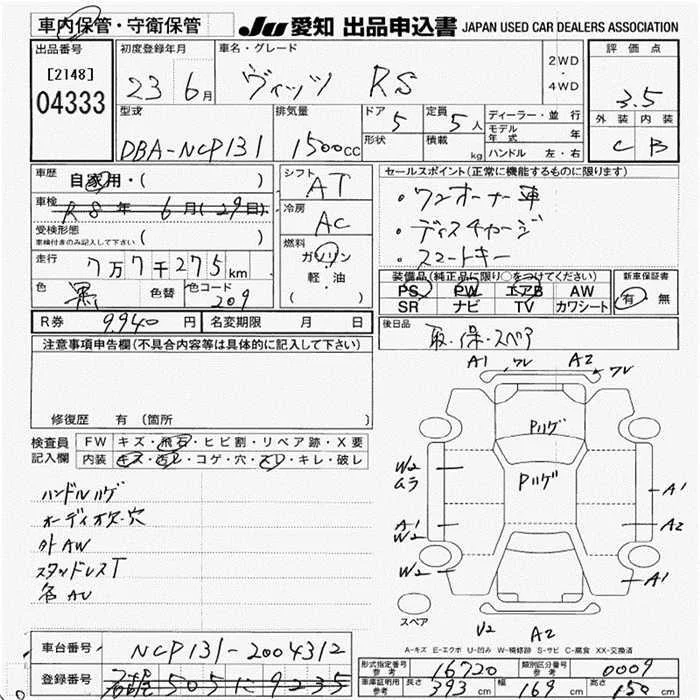 車内保管・守衛保管 JU 愛知 出品申込書 JAPAN USED CAR DEALERS ASSOCIATION
出品番号 初度登録年月 車名・グレード 2WD・4WD 評価点
[2148]
04333
23 6月 ヴィッツ RS 3.5
型式 排気量 ドア 定員 ディーラー・並行 外装 内装
DBA-NCP131 1500cc 5 5人
形状 積載 kg
モデル年式 年
ハンドル 左・右
C B
車歴 自家用・( )
シフト AT
セールスポイント(正常に機能するものに限ります)
車検 R8年 6月(29日)
・ワンオーナー車
冷房 AC
・ディスチャージ
受検形態 車検付きのみ記入して下さい ( )
・スマートキー
走行 7万7千275km
燃料 ガソリン 軽・油 ( )
装備品(純正品に限り〇をつけてください) 新車保証書
PS PW エアB AW
SR ナビ TV カワシート
有 無
色 黒 色替 色コード 209
R券 9,940円 名変期限 月 日
後日品 取・保・スペア
注意事項申告欄(不具合内容等は具体的に記入して下さい)
修復歴 有 (箇所
検査員記入欄 FW キズ・飛石・ヒビ割・リペア跡・X要
内装 キズ・汚レ・コゲ・穴・スレ・キレ・破レ
ハンドルハゲ
オーディオ欠・穴
外AW
スタッドレスT
A1 ワレ A2 ワレ
Pハゲ
Pハゲ
W2 ムラ
A1
A1 W2
A2
W2
A1
スペア
U2 A2
A-キズ E-エクボ U-凹み W-補修跡 S-サビ C-腐食 XX-交換済
車台番号 NCP131-2004312
登録番号 505 に 9235
形式指定番号 参考 16720 類別区分番号 参考 0009
車庫証明用 参考 長さ 393cm 幅 169cm 高さ 150cm